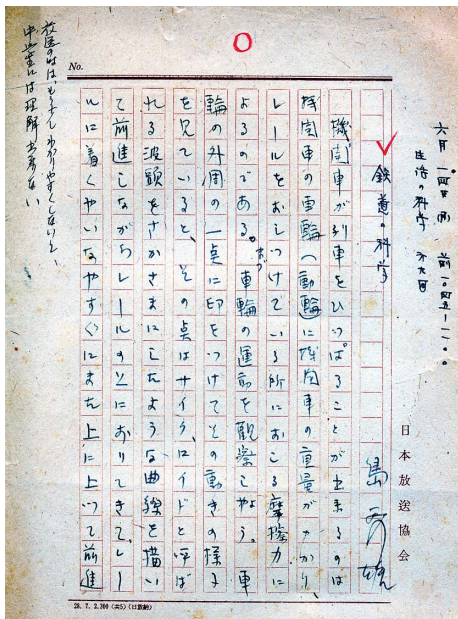 No.
六月一四日(月) 前一〇・四五―一一・〇〇
生活の科学 第九回
日本放送協会
鉄道の科学 島秀雄
機関車が列車をひっぱることが出来るのは
機関車の車輪(動輪)に機関車の重量がかかり、
レールをおしつけている所におこる摩擦力に
よるのである。まづ車輪の運動を観察しやう。車
輪の外周の一点に印をつけてその動きの様子
を見ていると、その点はサイクロイドと呼ば
れる波頭をさかさまにしたような曲線を描い
て前進しながらレールの上におりてきて、レー
ルに着くやいなやすぐにまた上に上って前進
放送の時は、もう少しわかりやすくしないと、
中学生には理解出来ない
28. 7. 2,300 (共5) (日放納)